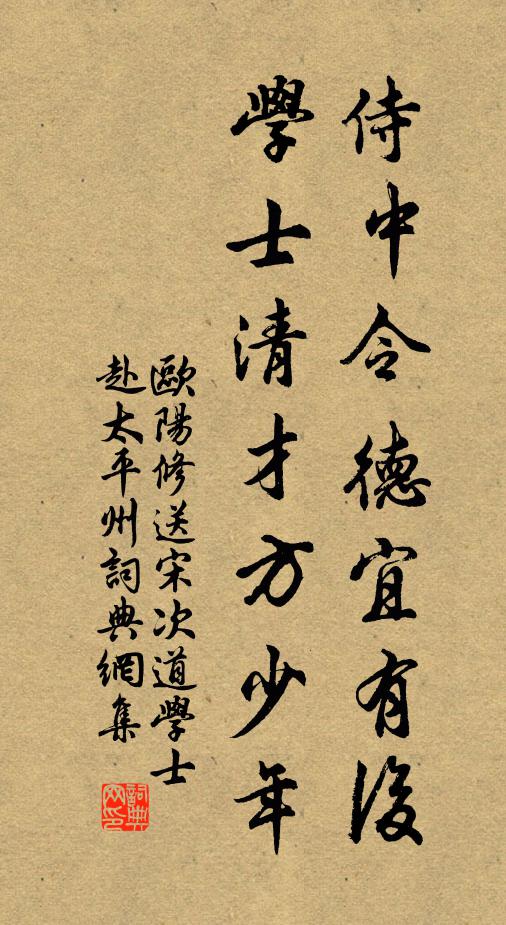 侍中令德宜有後
學士清才方少年
歐陽修送宋次道學士
赴太平州詞典網集
詞典网印